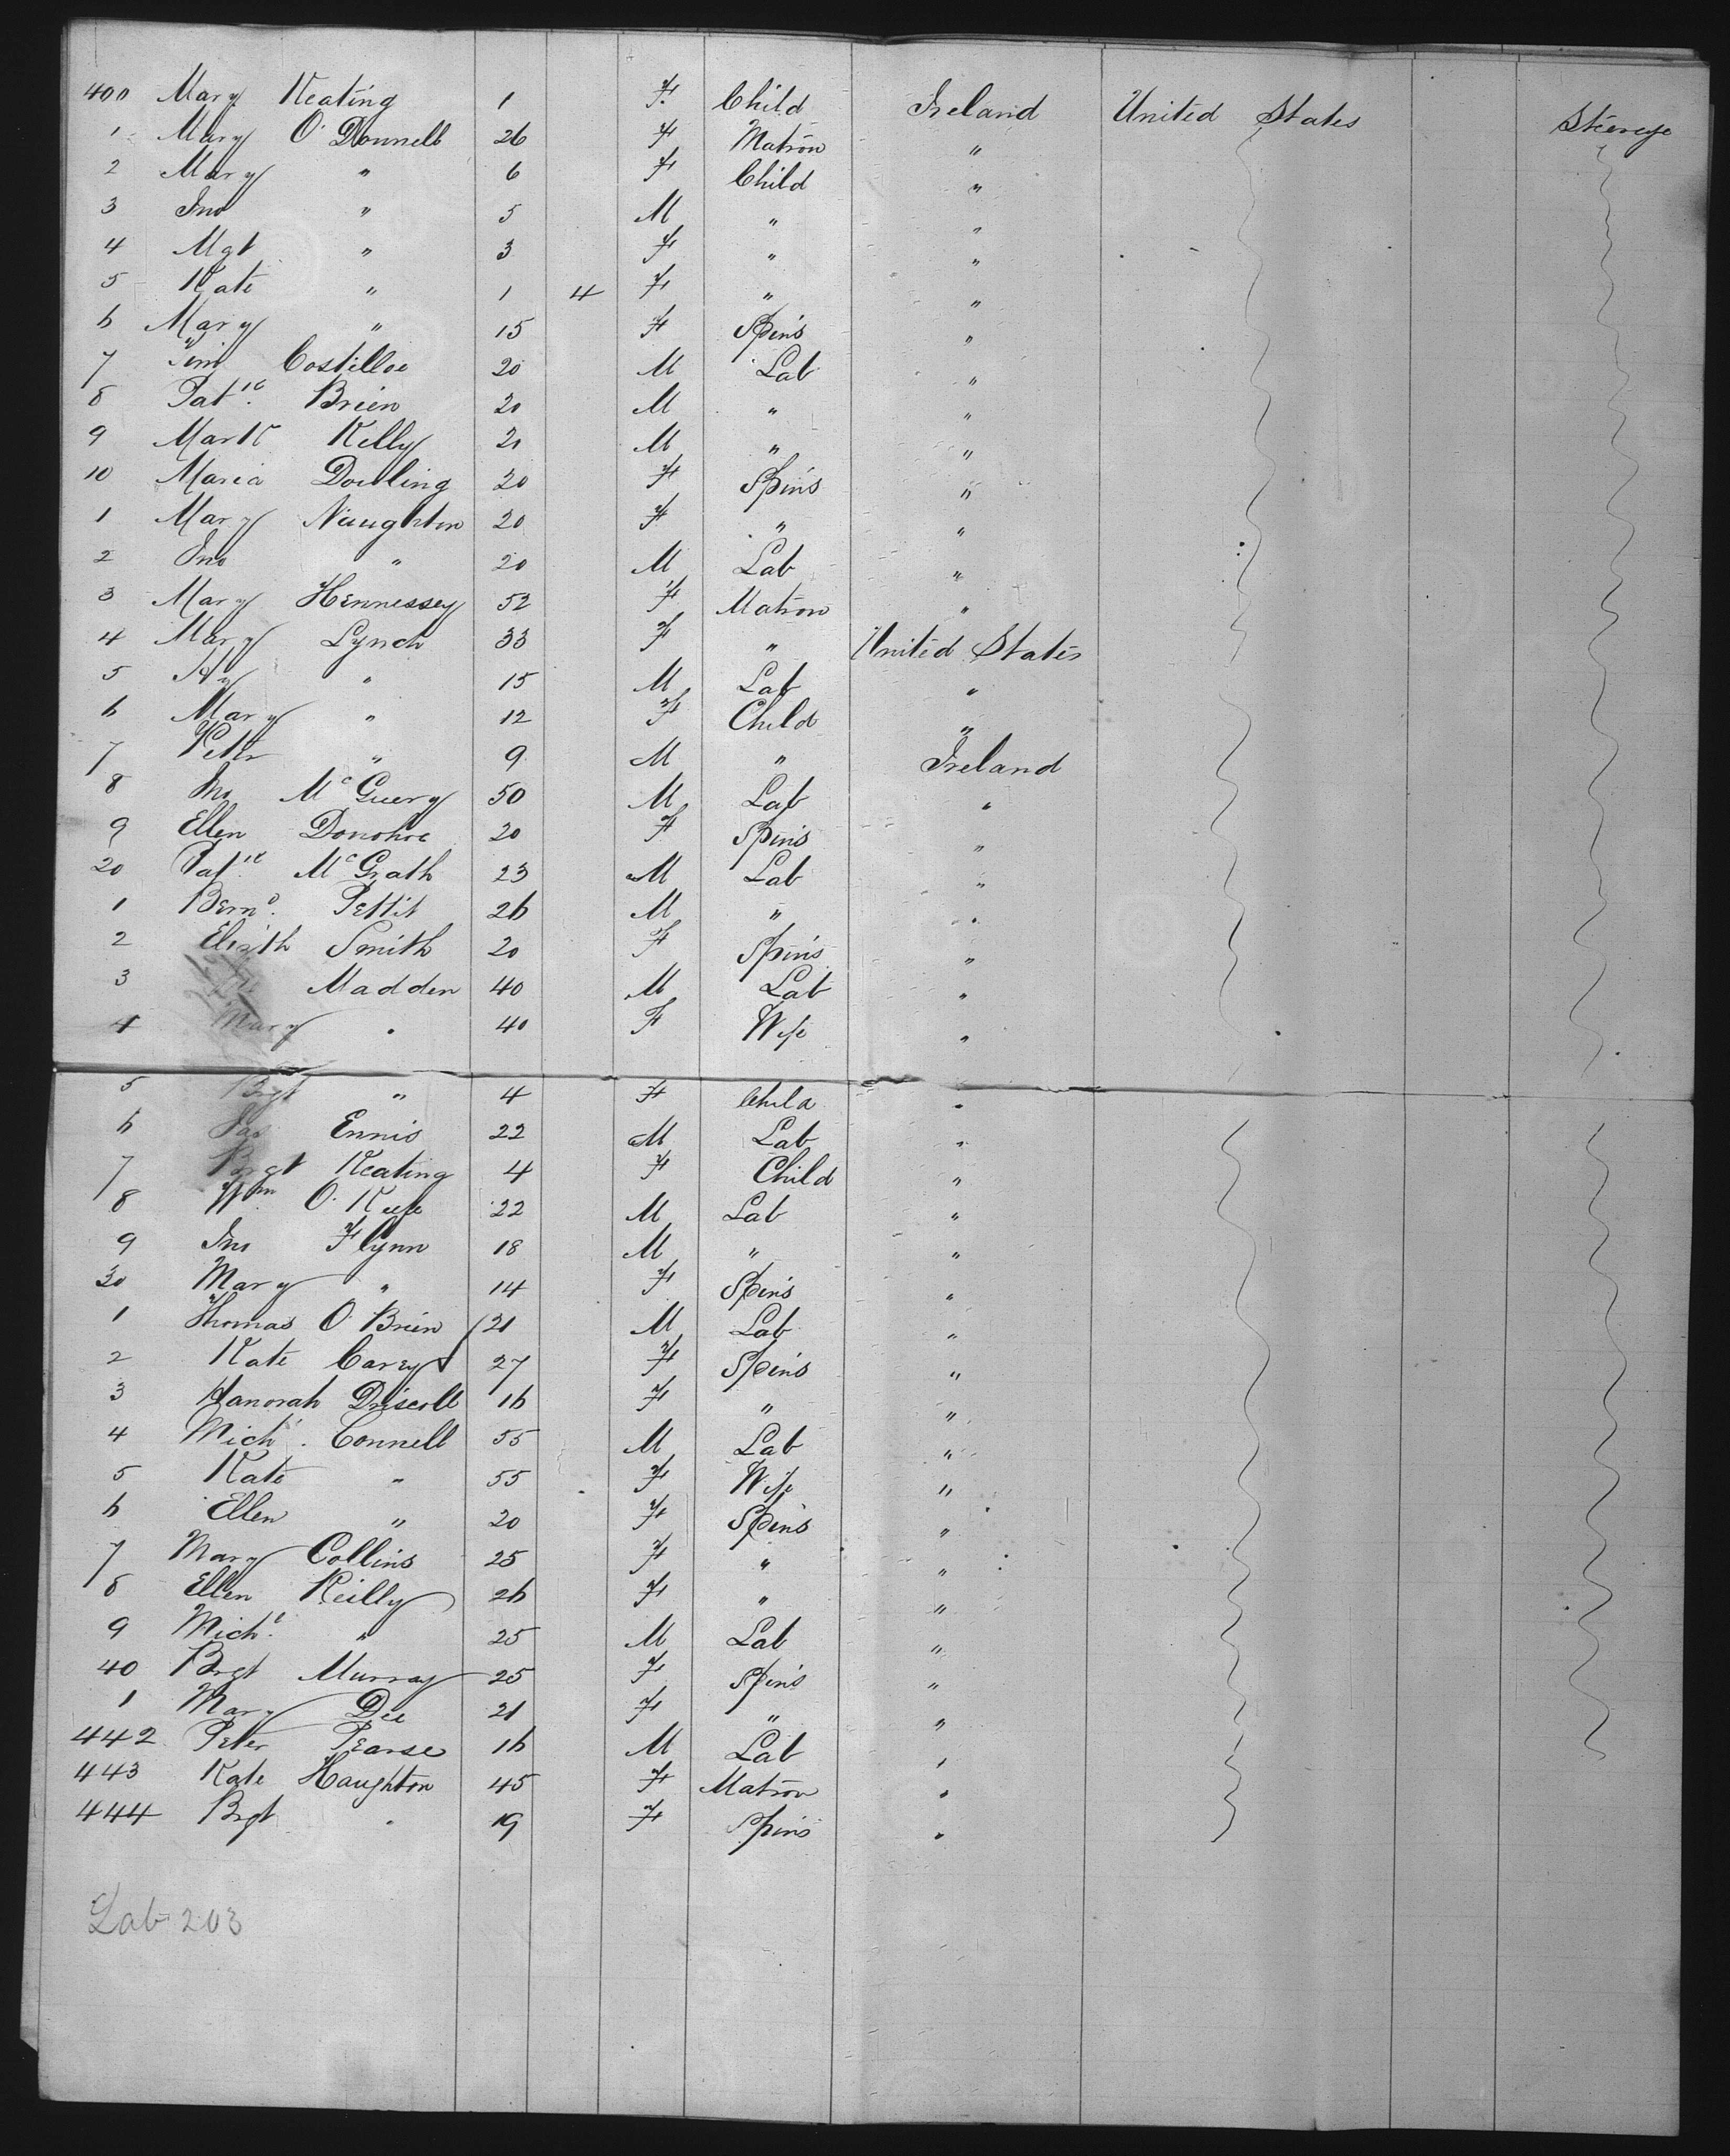 400 Mary Keating 1 F. Child Ireland United States Steerage
1 Mary O'Donnell 26 F Matron "
2 Mary " 6 F Child "
3 Jno " 5 M " "
4 Mgt " 3 F " "
5 Kate " 1 4 F " "
6 Mary " 15 F Spins "
7 Tim Costilloe 20 M Lab "
8 Patk. Brien 20 M " "
9 Mark Kelly 21 M " "
10 Maria Dowling 20 F Spins "
1 Mary Naughton 20 F " "
2 Jno " 20 M Lab "
3 Mary Hennessey 52 F Matron "
4 Mary Lynch 33 F " United States
5 Hy " 15 M Lab "
6 Mary " 12 F Child "
7 Peter " 9 M " Ireland
8 Jno McGuery 50 M Lab "
9 Ellen Donohoe 20 F Spins "
20 Patk. McGrath 23 M Lab "
1 Bernd. Pettit 26 M " "
2 Elizth Smith 20 F Spins "
3 Madden 40 M Lab "
4 Mary " 40 F Wife "
5 Brgt " 4 F Child "
6 Jas Ennis 22 M Lab "
7 Brgt Keating 4 F Child "
8 Wm O'Keefe 22 M Lab "
9 Jno Flynn 18 M " "
30 Mary " 14 F Spins "
1 Thomas O'Brien 21 M Lab "
2 Kate Carey 27 F Spins "
3 Hanorah Driscoll 16 F " "
4 Michl. Connell 55 M Lab "
5 Kate " 55 F Wife "
6 Ellen " 20 F Spins "
7 Mary Collins 25 F " "
8 Ellen Reilly 26 F " "
9 Michl. " 25 M Lab "
40 Brgt Murray 25 F Spins "
1 Mary Dee 21 F " "
442 Peter Pearse 16 M Lab "
443 Kate Haughton 45 F Matron "
444 Brgt " 19 F Spins "
Lab 203